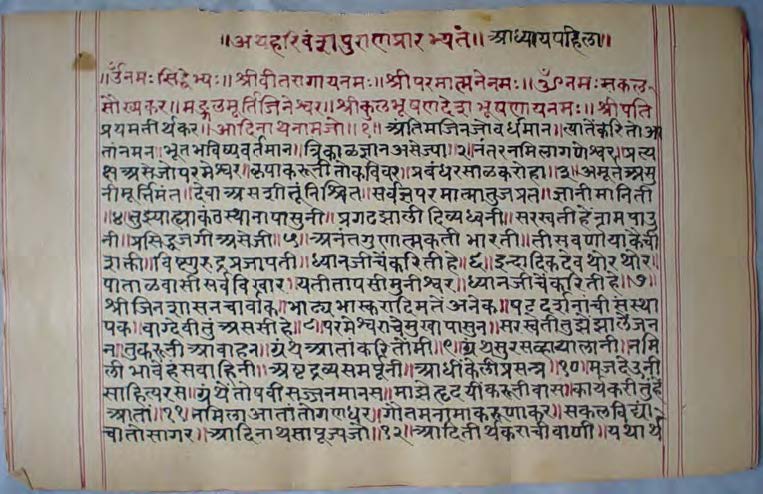 ॥अथहरिवंशपुराणप्रारभ्यतं॥ अध्यायपहिला॥
॥ॐनमःसिद्धेभ्यः॥ श्रीवीतरागायनमः॥ श्रीपरमात्मनेनमः॥ ॐनमःसकल
सौख्यकर॥ मङ्गलमूर्तिजिनेश्वर॥ श्रीकुलभूषणदेशभूषणायनमः॥ श्रीपति
प्रथमतीर्थकर॥ आदिनाथनामजो॥१॥ अंतिमजिनजोवर्धमान॥ त्यातेंकरितोआ
तांनमन॥ भूतभविष्यवर्तमान॥ त्रिकाळज्ञानअसेज्या॥२॥ नंतरनमिलागणेश्वर॥ प्रत्य
क्षअसेजोपरमेश्वर॥ कृपाकरूनी प्रबंधरसाळकरोहा॥३॥ अमूर्तअसु
नीमूर्तिमंत॥ देवाअससीतूंनिश्चित॥ सर्वज्ञपरमात्मातुजप्रत॥ ज्ञानीमानिती
॥४॥ तुझ्या प्रगटझालीदिव्यध्वनी॥ सरस्वतीहेंनामपाउ
नी॥ प्रसिद्धजगीअसेजी॥५॥ अनंतगुणात्मकती भारती॥ तीसवर्णायाकैची
शक्ती॥ विष्णुरुद्रप्रजापती॥ ध्यानजीचेंकरितीहे॥६॥ इन्द्रादिकदेवथोरथोर॥
पाताळवासीसर्वविखार॥ यतीतापसीमुनीश्वर॥ ध्यानजीचेंकरितीहे॥७॥
श्रीजिनशासनचार्वाक॥ भाट्टभास्करादिमतेंअनेक॥ षट्दर्शनांचीसंस्था
पक॥ वाग्देवीतुअससीहे॥८॥ परमेश्वराचेमुखापासुन॥ सरस्वतीतुझेझालेंजन
न॥ तुकरूनीआवाहन॥ ग्रंथआतांकरितोंमी॥९॥ ग्रंथसुरस नमि
लीभावेंहंसवाहिनी॥ अष्टद्रव्यसमर्पूनी॥ आधींकेलीप्रसन्न॥१०॥ मजदेउनी
साहित्यरस॥ ग्रंथेंतोषवीसज्जनमानस॥ माझेहृदयींकरूनीवास॥ कार्यकरीतुहें
आतां॥११॥ नमिलाआतांतोगणधर॥ गौतमनामाकरुणाकर॥ सकलविद्ये
चातोसागर॥ आदिनाथसापूज्यजो॥१२॥ आदितीर्थकराचीवाणी॥ यथार्थ